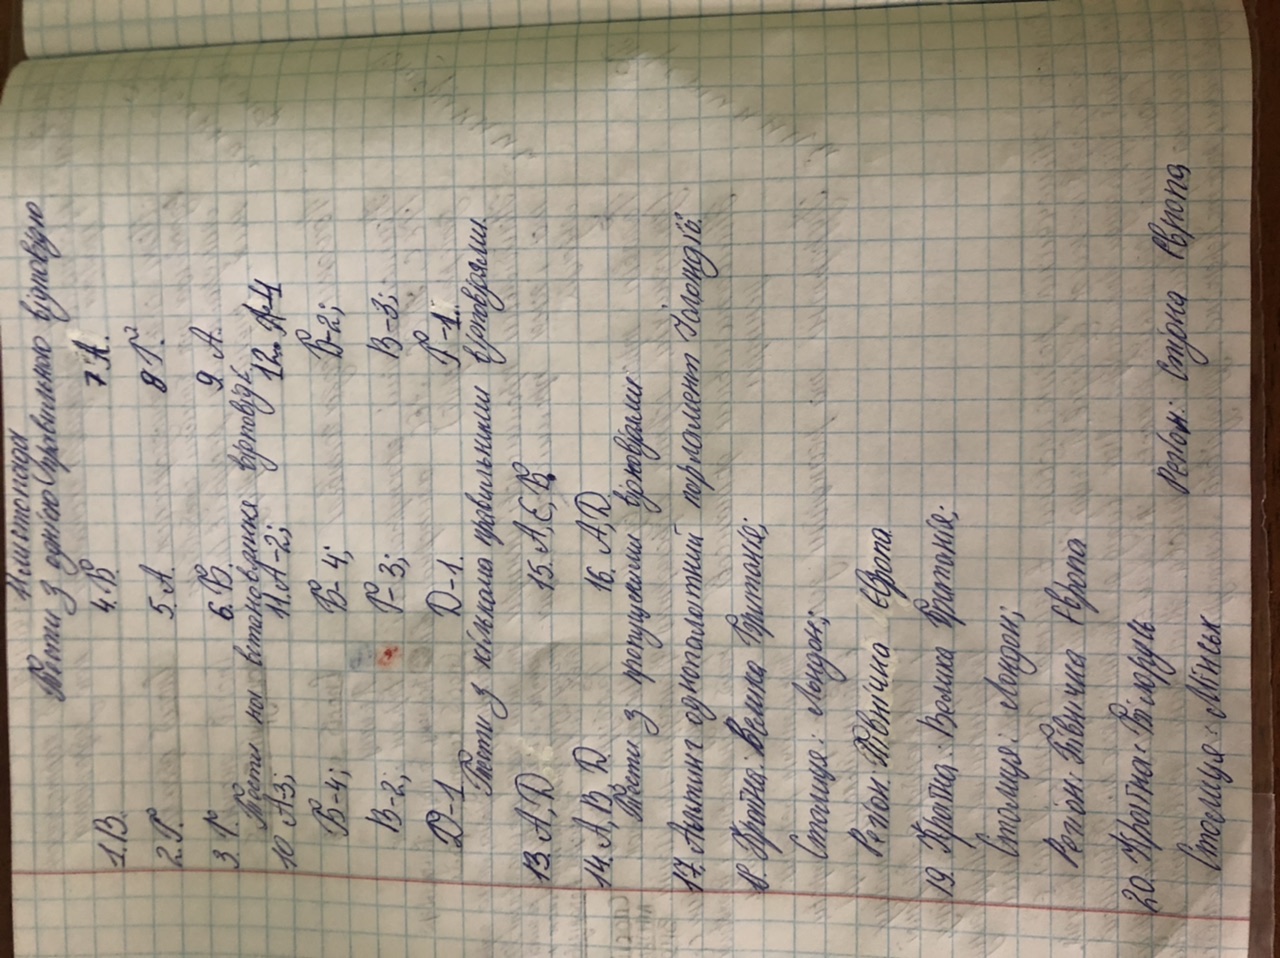 11 листопада
Тести з однією правильною відповіддю
1. В. 4. В 7. А.
2. Г. 5. А 8. Г.
3. Г. 6. В. 9. А
Тести на встановлення відповідн.
10 А-3; 11. А-2; 12. А-4
Б-4; Б-4; Б-2;
В-2; Г-3; В-3;
Д-1 Д-1. Г-1.
Тести з кількома правильними відповідями
13. А, Д 15. А, Є, В
14. А, В, Д 16. А, Д
Тести з пропущеними відповідями
17. Альтинг однополатний парламент Ісландії
18. Країна: Велика Британія;
Столиця: Лондон;
Регіон: Північна Європа
19. Країна: Велика Британія;
Столиця: Лондон;
Регіон: Північна Європа
20. Країна: Білорусь
Столиця: Мінськ Регіон: Східна Європа